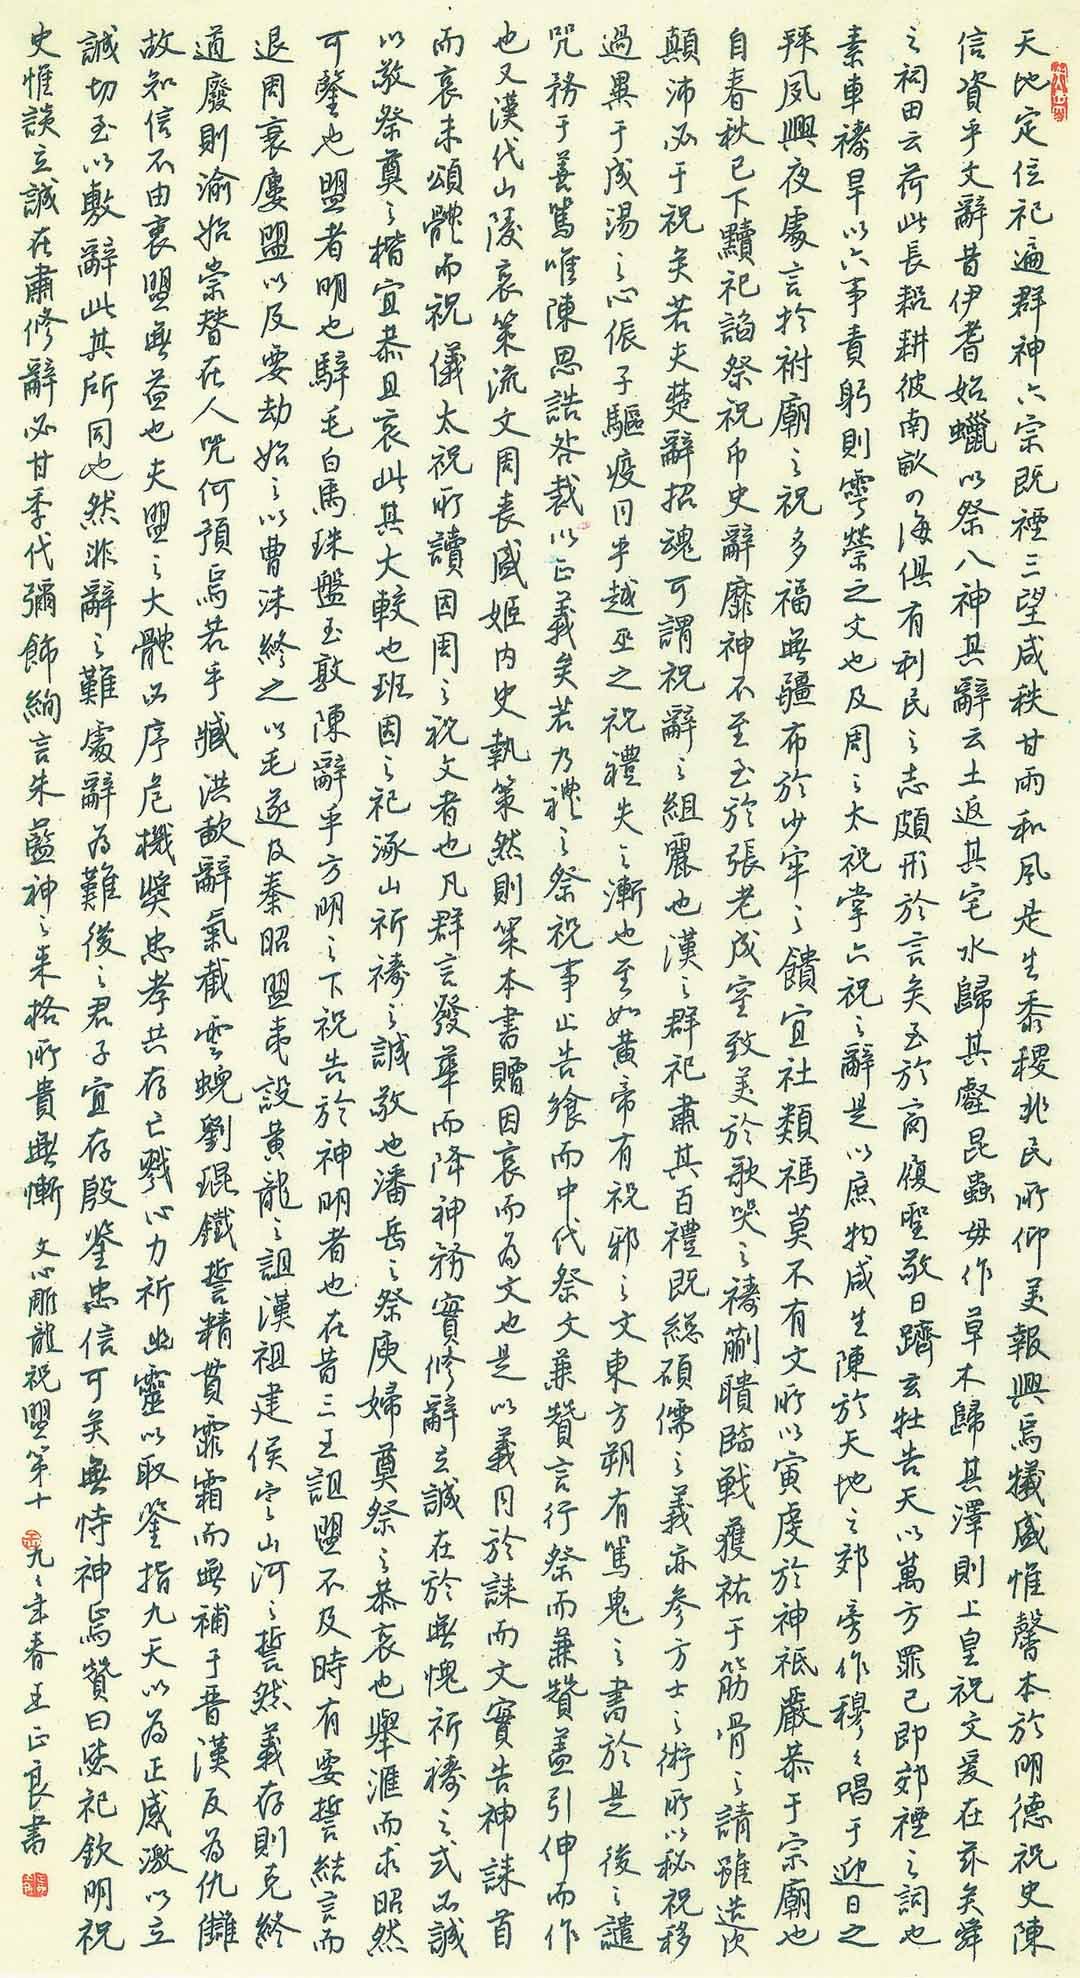 天地定位祀遍群神六宗既禋三望咸秩甘雨和風是生黍稷兆民所仰美報興焉犧盛惟馨本於明德祝史陳
信資乎文辭昔伊耆始蠟以祭八神其辭云土返其宅水歸其壑昆蟲毋作草木歸其澤則上皇祝文爰在茲矣舜
之祠田云荷此長耜耕彼南畝四海俱有利民之志頗形於言矣至於商履聖敬日躋玄牡告天以萬方罪己即郊禋之詞也
素車禱旱以六事責躬則雩禜之文也及周之太祝掌六祝之辭是以庶物咸生陳於天地之郊旁作穆々唱于迎日之
拜夙興夜處言於祔廟之祝多福無疆布於少牢之饋宜社類禡莫不有文所以寅虔於神祇嚴恭于宗廟也
自春秋已下黷祀諂祭祝幣史辭靡神不至至於張老成室致美於歌哭之禱蒯聵臨戰獲祐于筋骨之請雖造次
顛沛必于祝矣若夫楚辭招魂可謂祝辭之組麗也漢之群祀肅其百禮既總碩儒之義亦參方士之術所以秘祝移
過異于成湯之心侲子驅疫同乎越巫之祝禮失之漸也至如黃帝有祝邪之文東方朔有罵鬼之書於是後之譴
咒務于善罵唯陳思誥咎裁以正義矣若乃禮之祭祝事止告饗而中代祭文兼贊言行祭而兼贊蓋引伸而作
也又漢代山陵哀策流文周喪盛姬內史執策然則策本書贈因哀而為文也是以義同於誄而文實告神誄首
而哀末頌體而祝儀太祝所讀因周之祝文者也凡群言發華而降神務實修辭立誠在於無愧祈禱之式必誠
以敬祭奠之楷宜恭且哀此其大較也班固之祀涿山祈禱之誠敬也潘岳之祭庾婦奠祭之恭哀也舉滙而求昭然
可鑒也盟者明也騂毛白馬珠盤玉敦陳辭乎方明之下祝告於神明者也在昔三王詛盟不及時有要誓結言而
退周衰屢盟以及要劫始之以曹沫終之以毛遂及秦昭盟夷設黃龍之詛漢祖建侯定山河之誓然義存則克終
道廢則渝始崇替在人咒何預焉若乎臧洪歃辭氣截雲蜺劉琨鐵誓精貫霏霜而無補于晉漢反為仇讎
故知信不由衷盟無益也夫盟之大體必序危機獎忠孝共存亡戮心力祈幽靈以取鑒指九天以為正感激以立
誠切至以敷辭此其所同也然非辭之難處辭為難後之君子宜存殷鑒忠信可矣無恃神焉贊曰毖祀欽明祝
史惟談立誠在肅修辭必甘季代彌飾絢言朱藍神之來格所貴無慚 文心雕龍祝盟第十 一九九二年春王正良書